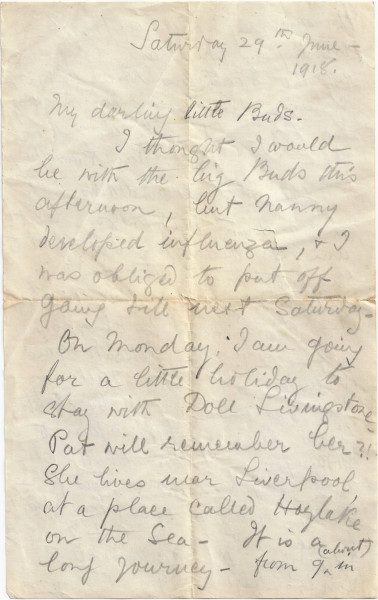 Saturday 29th June -
1918.
My darling little Buds.
I thought I would
be with the big Buds this
afternoon, but Nanny
developed influenza, & I
was obliged to put off
going till next Saturday -
On Monday, I am going
for a little holiday to
stay with Doll Livingstone
Pat will remember her?!
She lives near Liverpool
at a place called Hoylake
on the Sea - It is a
(about)
long journey - from 9 a.m